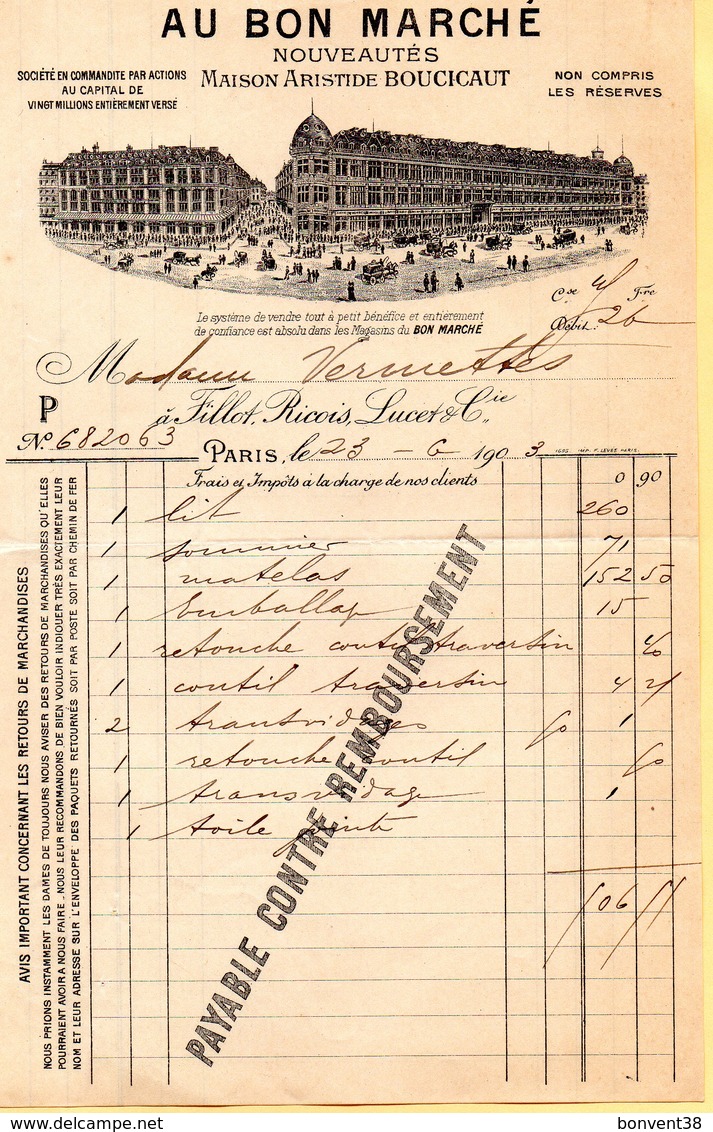 AU BON MARCHÉ
NOUVEAUTÉS
MAISON ARISTIDE BOUCICAUT
SOCIÉTÉ EN COMMANDITE PAR ACTIONS
AU CAPITAL DE
VINGT MILLIONS ENTIÈREMENT VERSÉ
NON COMPRIS
LES RÉSERVES
Le système de vendre tout à petit bénéfice et entièrement
de confiance est absolu dans les Magasins du BON MARCHÉ
Cse Fre
Débit: 26
Madame Vermettes
P à Fillot, Ricois, Lucet & Cie
No. 682063
PARIS, le 23 - 6 1903
1695. IMP. F. LEVÉE PARIS.
Frais et Impôts à la charge de nos clients 0 90
1 lit 260
1 sommier 71
1 matelas 152 50
1 Emballage 15
1 retouche coutil traversin 40
1 coutil traversin 4
2 transvidages 50 1
1 retouche coutil
1 transvidage 1
1 toile
506 55
PAYABLE CONTRE REMBOURSEMENT
AVIS IMPORTANT CONCERNANT LES RETOURS DE MARCHANDISES
NOUS PRIONS INSTAMMENT LES DAMES DE TOUJOURS NOUS AVISER DES RETOURS DE MARCHANDISES QU'ELLES
POURRAIENT AVOIR A NOUS FAIRE. NOUS LEUR RECOMMANDONS DE BIEN VOULOIR INDIQUER TRÈS EXACTEMENT LEUR
NOM ET LEUR ADRESSE SUR L'ENVELOPPE DES PAQUETS RETOURNÉS SOIT PAR POSTE SOIT PAR CHEMIN DE FER
bonvent38